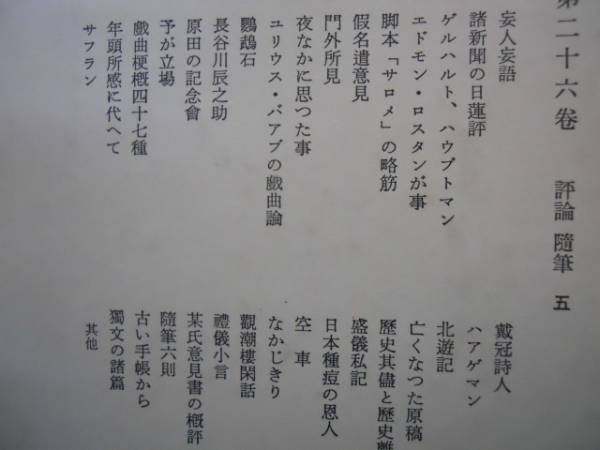 第二十六卷 評論 隨筆 五
妄人妄語
諸新聞の日蓮評
ゲルハルト、ハウプトマン
エドモン・ロスタンが事
脚本「サロメ」の略筋
假名遣意見
門外所見
夜なかに思つた事
ユリウス・バアブの戲曲論
鸚鵡石
長谷川辰之助
原田の記念會
予が立場
戲曲梗概四十七種
年頭所感に代へて
サフラン
戴冠詩人
ハアゲマン
北遊記
亡くなつた原稿
歷史其儘と歷史離
盛儀私記
日本種痘の恩人
空車
なかじきり
觀潮樓閑話
禮儀小言
某氏意見書の概評
隨筆六則
古い手帳から
獨文の諸篇
其他